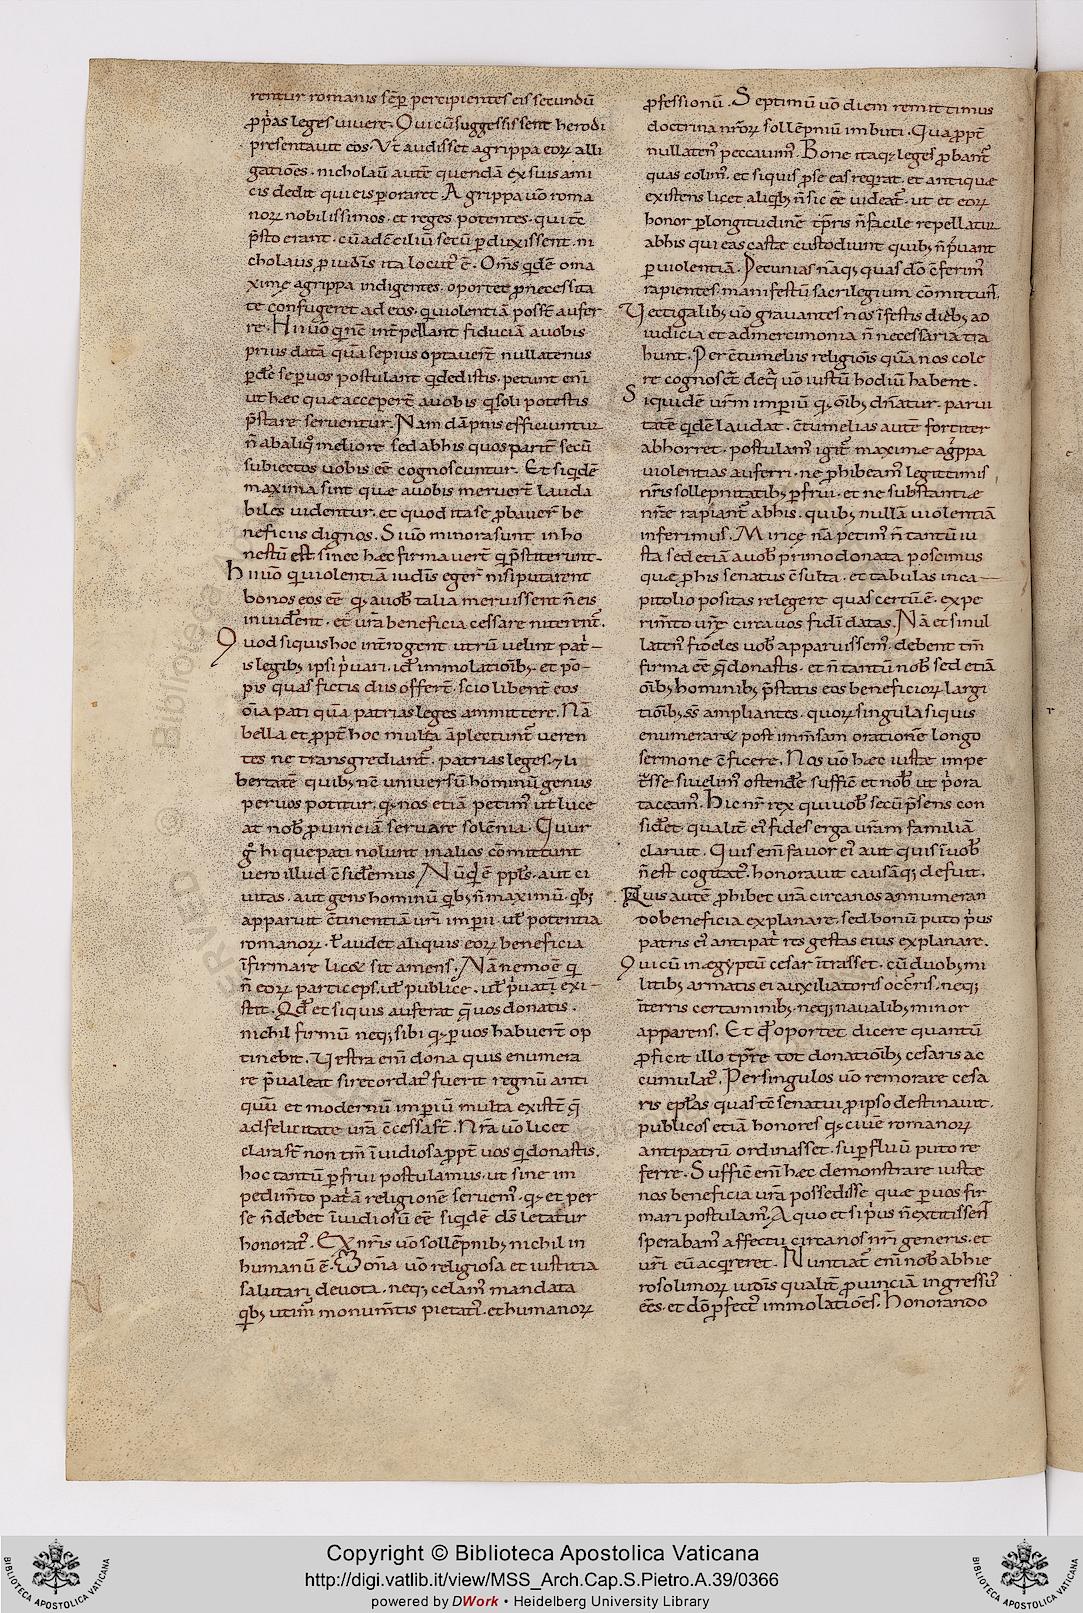 rentur romanis sēp percipientes eis secundū
p̄pas leges vivere. Qui cū suggessissent herodi
presentavit eos. Ut audisset agrippa eorꝝ alli
gatiōes. nicholaū autē quendā ex suis ami
cis dedit qui eis ꝑoraret. Agrippa ūo roma
norꝝ nobilissimos. et reges potentes. qui tē
p̄sto erant. cū ad cēciliū secū ꝑduxissent. ni
cholaus ꝓ iudeīs ita locut᷒ ē. Om̄s qdē o ma
xime agrippa indigentes. oportet ꝓ necessita
te confugere ad eos. qui violentiā possīt aufer
re. Hii ūo qͥ nūc int̄pellant fiduciā a vobis
prius datā quā sepius optauer̄t nullatenus
ꝑdēs se per vos postulant qd dedistis. petunt eni
ut hæc quæ acceper̄t a vobis qͥ soli potestis
p̄stare serventur. Nam dāpnis efficiuntur
n̄ ab aliqͦ meliore sed ab his quos parit̄ secū
subiectos vobis eē cognoscuntur. Et siqͥdē
maxima sint quæ a vobis meruer̄t lauda
biles videntur. et quod ita se ꝓbauer̄ be
neficiis dignos. Si ūo minora sunt in ho
nestū est si nec hæc firma uer̄t qͥ p̄stiterunt.
Hii ūo qͥ violentiā iudeīs eger̄ nisi putarent
bonos eos eē qͥ a uob̄ talia meruissent n̄ eis
inviderent. et ur̄a beneficia cessare niterent᷒.
Quod siquis hoc int̄rogent utrū uelint pat̄
is legibꝫ ipsi p̄vari. ide immolatiōibꝫ. et po
pis quas fictis diis offer̄t. scio libent̄ eos
oīa pati quā patrias leges ammittere. Nā
bella et ꝓpt̄ hoc multa āplectunt᷒ veren
tes ne transgrediant᷒. patrias leges. ⁊ li
bertatē quibꝫ nc̄ universū hominū genus
per vos potitur. qͥ nos etiā petim᷒ ut luce
at nob̄ ꝓvinciā servare solēnia. Quur
gͦ hi que pati nolunt in alios cōmittunt
vero illud c̄sidemus. Nūqͥd ē ppls̄. aut ci
vitas. aut gens hominū qͥbꝫ n̄ maximū. qͥbꝫ
apparuit c̄tinentiā ur̄i imperii. ut̄ potentia
romanorꝝ. ł audet aliquis eorꝝ beneficia
īfirmare licet sit amens. Nā nemo ē qͥ
n̄ eorꝝ particeps. uł publice. uł p̄vatī exi
stit. Qd et siquis auferat qͥ vos donatis.
nichil firmū neqꝫ sibi qͥ per vos habuer̄t op
tinebit. Vestra enī dona quis enumera
re p̄valeat si recordat᷒ fuerit regnū anti
quū et modernū imperiū multa existīt qͥ
ad felicitatē ur̄a c̄cessa st̄. Nr̄a ūo licet
clara st̄ non tm̄ īvidiosa ꝓpt̄ vos qͥ donastis.
hoc tantū ꝑfrui postulamus. ut sine im
pedim̄to pat̄ā religionē servem᷒. qͥ et per
se n̄ debet īvidiosū eē siqͥdē ds̄ letatur
honorat᷒. Ex nr̄is ūo sollēpnibꝫ nichil in
humanū ē. Sꝫ oīa ūo religiosa et iustitia
salutari devota. neqꝫ celam᷒ mandata
qͥbꝫ utim᷒ monum̄tis pietatī. et humanorꝝ
ꝓfessionū. Septimū ūo diem remittimus
doctrina nr̄orꝝ sollēpniū imbuti. Qua ꝓpt̄
nullaten᷒ peccavim᷒. Bone itaqꝫ leges ꝓbant᷒
quas colim᷒. et siquis ꝓ se eas reqͥrat. et antiquæ
existens licet aliqͥbꝫ n̄ sic eē videat᷒. ut et eorꝝ
honor ꝑ longitudinē tp̄ris n̄ facile repellatur
ab his qui eas caste custodiunt quibꝫ n̄ p̄vant
ꝑ violentiā. Pecunias nāqꝫ quas dō c̄ferim᷒
rapientes manifestū sacrilegium cōmittunt.
Vectigalibꝫ ūo gravantes nos īfestis diebꝫ ad
iudicia et ad mercimonia n̄ necessaria tra
hunt. Per c̄tumeliis religiōis quā nos cole
re cognoscīt de qͣ ūo iustū hodiū habent.
Siquidē ur̄m imperiū qͥ oībꝫ dn̄atur. parui
tatē qͥdē laudat. c̄tumelias autē fortiter
abhorret. postulam᷒ igit᷒ maxime agrippa
violentias auferri. ne ꝓhibeam᷒ legittimis
nr̄is sollepnitatibꝫ ꝑfrui. et ne substantiæ
nr̄e rapiant᷒ ab his. quibꝫ nullā violentiā
inferimus. Mirice nā petim᷒ n̄ tantū iu
sta sed etiā a uob̄ primo donata poscimus
quæ ꝓ his senatus c̄sulta. et tabulas in ca
pitolio positas relegere quas certū ē. expe
rim̄to ur̄e circa vos fidī datas. Nā et si nul
laten᷒ fideles uob̄ apparuissem᷒. debent tm̄
firma eē qͥ donastis. et n̄ tantū nob̄ sed etiā
oībꝫ hominibꝫ p̄statis eos beneficiorꝝ largi
tiōibꝫ ss̄ ampliantes. quorꝝ singula siquis
enumerare post immēsam orationē longo
sermone c̄ficere. Nos ūo hæc iuste impe
tesse si uelim᷒ ostendē suffic̄ et nob̄ ut p̄ora
taceam᷒. Hic nr̄ rex qui uob̄ secū p̄sens con
sidet. qualit̄ ei᷒ fides erga ur̄am familiā
claruit. Quis enī favor ei᷒ aut quis ī uob̄
n̄ est cogitat᷒. honoravit causāqꝫ defuit.
Quis autē ꝓhibet ur̄a circa nos annumeran
do beneficia explanare. sed bonū puto p̄us
patris ei᷒ antipat̄ res gestas eius explanare.
Qui cū in ægyptū cesar ītrasset. cū duobꝫ mi
litibꝫ armatis ei auxiliatoris oc̄eris. neqꝫ
ī terris certaminibꝫ. neqꝫ navalibꝫ minor
apparens. Et qͥd oportet dicere quantū
ꝓficit illo tp̄re tot donatiōibꝫ cesaris ac
cumulat᷒. Per singulos ūo remorare cesa
ris epl̄as quas tc̄ senatui ꝓ ipso destinavit.
publicos etiā honores qͥ civē romanorꝝ
antipatrū ordinasset. suꝑfluū puto re
ferre. Suffic̄ enī hæc demonstrare iuste
nos beneficia ur̄a possedisse quæ ꝑ vos fir
mari postulam᷒. A quo et si p̄us n̄ extitissent
sperabam᷒ affectu circa nos nr̄i generis. et
ur̄i eū acqͥreret. Nuntiat᷒ enī nob̄ ab hie
rosolimorꝝ iudeīs qualit̄ ꝓvinciā ingressus
ees. et dō ꝑfect᷒ immolatiōes. Honorando
Copyright © Biblioteca Apostolica Vaticana
http://digi.vatlib.it/view/MSS_Arch.Cap.S.Pietro.A.39/0366
powered by DWork • Heidelberg University Library
BIBLIOTECA APOSTOLICA VATICANA
BIBLIOTECA APOSTOLICA VATICANA